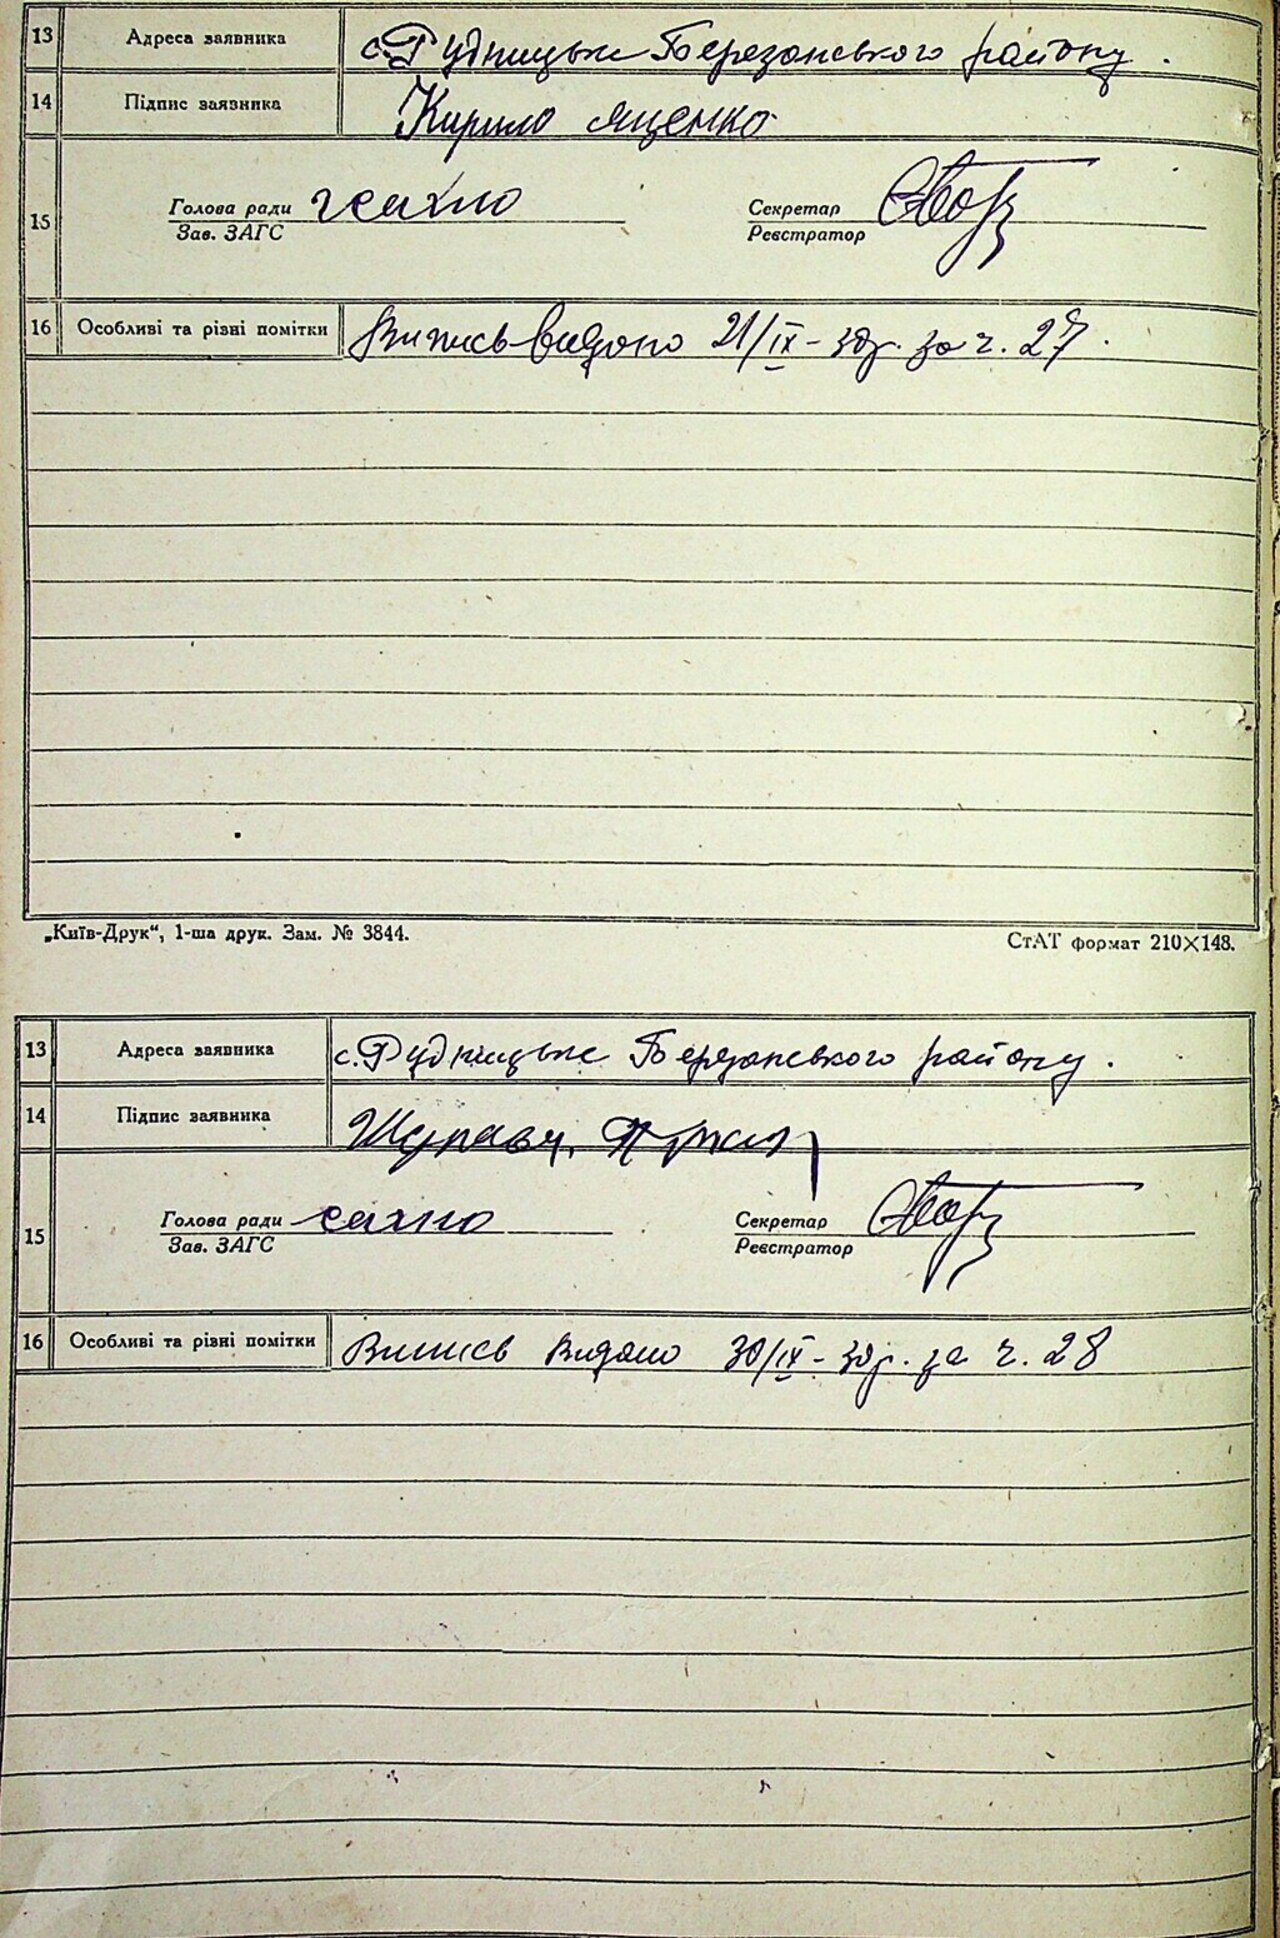 13 Адреса заявника с. Рудницьке Березанського району.
14 Підпис заявника Кирило Яценко
15 Голова ради Сахно Секретар
Зав. ЗАГС Реєстратор
16 Особливі та різні помітки Випись видано 21/IX-30р. за ч. 27.
„Київ-Друк“, 1-ша друк. Зам. № 3844. СтАТ формат 210×148.
13 Адреса заявника с. Рудницьке Березанського району.
14 Підпис заявника
15 Голова ради Сахно Секретар
Зав. ЗАГС Реєстратор
16 Особливі та різні помітки Випись видано 30/IX-30р. за ч. 28